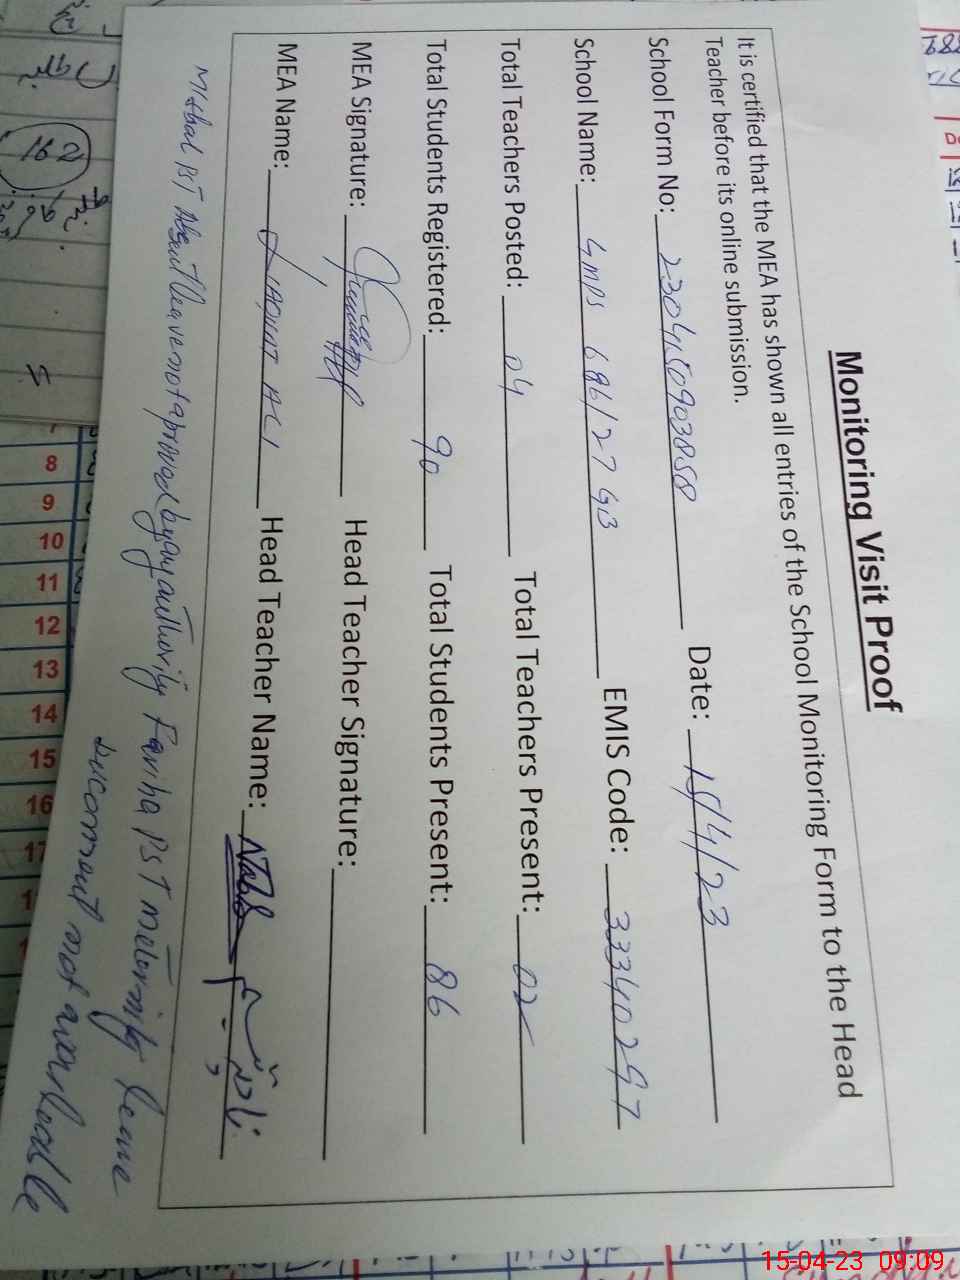 Monitoring Visit Proof
It is certified that the MEA has shown all entries of the School Monitoring Form to the Head
Teacher before its online submission.
School Form No: 2304150903858 Date: 15/4/23
School Name: GMPS 696/27 GB EMIS Code: 33340297
Total Teachers Posted: 04 Total Teachers Present: 02
Total Students Registered: 90 Total Students Present: 86
MEA Signature: Head Teacher Signature:
MEA Name: Liaquat Ali Head Teacher Name: نادیہ
Misbal PST Absent leave not aproved by any authority Fariha PST meternity leave
Document not availeable
162
8
9
10
11
12
13
14
15
16
15-04-23 09:09